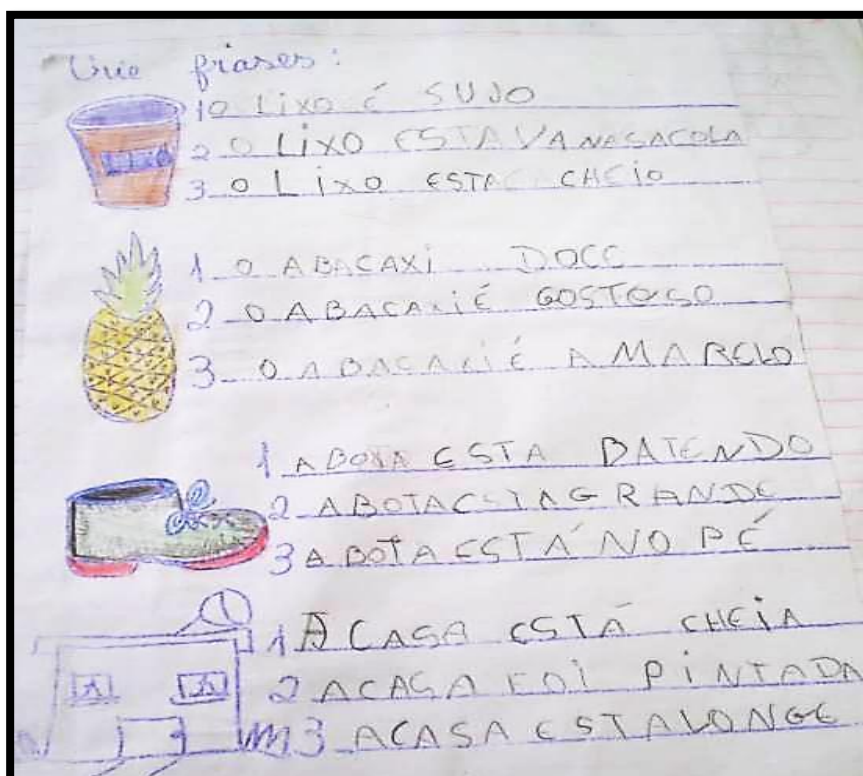 Crie frases:
LIXO
1 O LIXO É SUJO
2 O LIXO ESTAVA NA SACOLA
3 O LIXO ESTA CHEIO
1 O ABACAXI DOCE
2 O ABACAXI É GOSTOSO
3 O ABACAXI É AMARELO
1 A BOTA ESTA BATENDO
2 A BOTA ESTA GRANDE
3 A BOTA ESTÁ NO PÉ
1 A CASA ESTÁ CHEIA
2 A CASA FOI PINTADA
3 A CASA ESTA LONGE